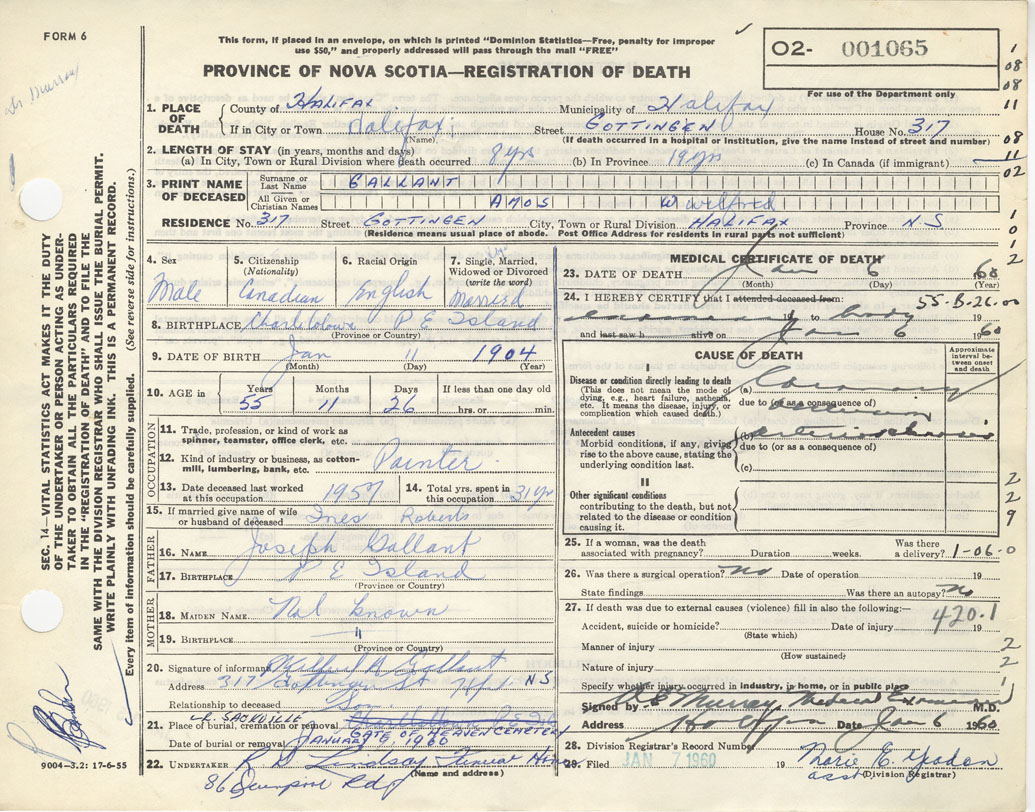 FORM 6
This form, if placed in an envelope, on which is printed "Dominion Statistics—Free, penalty for improper
use $50," and properly addressed will pass through the mail "FREE"
PROVINCE OF NOVA SCOTIA—REGISTRATION OF DEATH
02- 001065
For use of the Department only
1
08
08
11
08
11
02
1
0
1
2
Dr Murray
SEC. 14—VITAL STATISTICS ACT MAKES IT THE DUTY
OF THE UNDERTAKER OR PERSON ACTING AS UNDER-
TAKER TO OBTAIN ALL THE PARTICULARS REQUIRED
IN THE "REGISTRATION OF DEATH" AND TO FILE THE
SAME WITH THE DIVISION REGISTRAR WHO SHALL ISSUE THE BURIAL PERMIT.
WRITE PLAINLY WITH UNFADING INK. THIS IS A PERMANENT RECORD.
Every item of information should be carefully supplied. (See reverse side for instructions.)
1. PLACE OF DEATH County of HALIFAX Municipality of Halifax
If in City or Town Halifax (Name) Street GOTTINGEN House No. 317
(If death occurred in a hospital or Institution, give the name Instead of street and number)
2. LENGTH OF STAY (in years, months and days)
(a) In City, Town or Rural Division where death occurred 8 yrs (b) In Province 19 yrs (c) In Canada (if immigrant)
3. PRINT NAME OF DECEASED Surname or Last Name GALLANT
All Given or Christian Names AMOS W Wilfred
RESIDENCE No. 317 Street GOTTINGEN City, Town or Rural Division HALIFAX Province N.S
(Residence means usual place of abode. Post Office Address for residents in rural parts not sufficient)
4. Sex Male
5. Citizenship (Nationality) Canadian
6. Racial Origin English
7. Single, Married, Widowed or Divorced (write the word) Married
8. BIRTHPLACE Charlottetown P E Island
(Province or Country)
9. DATE OF BIRTH Jan 11 1904
(Month) (Day) (Year)
10. AGE in Years 55 Months 11 Days 26 If less than one day old hrs. or min.
OCCUPATION
11. Trade, profession, or kind of work as spinner, teamster, office clerk, etc.
12. Kind of industry or business, as cotton-mill, lumbering, bank, etc. Painter
13. Date deceased last worked at this occupation 1957
14. Total yrs. spent in this occupation 31 yrs
15. If married give name of wife or husband of deceased Ines Roberts
FATHER
16. NAME Joseph Gallant
17. BIRTHPLACE P E Island
(Province or Country)
MOTHER
18. MAIDEN NAME Not known
19. BIRTHPLACE "
(Province or Country)
20. Signature of informant Wilfred A Gallant
Address 317 Gottingen St Hfx N S
Relationship to deceased Son
LR. SACKVILLE
21. Place of burial, cremation or removal Charlottetown P.E. Isld
GATE OF HEAVEN CEMETERY
Date of burial or removal JANUARY 9, 1960
22. UNDERTAKER Lindsay Funeral Home
(Name and address)
86
9004-3.2: 17-6-55
MEDICAL CERTIFICATE OF DEATH
23. DATE OF DEATH Jan 6 60
(Month) (Day) (Year)
24. I HEREBY CERTIFY that I attended deceased from: 55-B-26.00
to body 19
and last saw h alive on Jan 6 1960
CAUSE OF DEATH
Approximate interval between onset and death
I
Disease or condition directly leading to death
(This does not mean the mode of dying, e.g., heart failure, asthenia, etc. It means the disease, injury, or complication which caused death.)
(a) Coronary
due to (or as a consequence of)
Antecedent causes
Morbid conditions, if any, giving rise to the above cause, stating the underlying condition last.
(b) arteriosclerosis
due to (or as a consequence of)
(c)
II
Other significant conditions contributing to the death, but not related to the disease or condition causing it.
2
2
9
25. If a woman, was the death associated with pregnancy? Duration weeks. Was there a delivery? 1-06-0
26. Was there a surgical operation? no Date of operation 19
State findings Was there an autopsy? no
27. If death was due to external causes (violence) fill in also the following:— 420.1
Accident, suicide or homicide? Date of injury 19
(State which)
Manner of injury 2
(How sustained)
Nature of injury 2
Specify whether injury occurred in industry, in home, or in public place 1
Signed by Murray, Medical Examiner M.D.
Address Halifax Date Jan 6 1960
28. Division Registrar's Record Number
29. Filed JAN 7 1960 19 Marie E.
asst (Division Registrar)